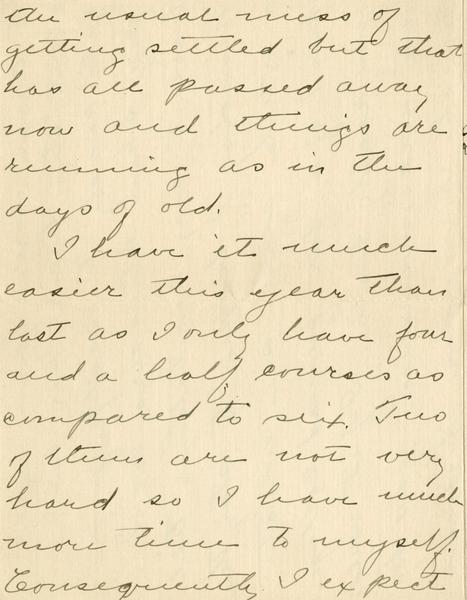 the usual mess of
getting settled but that
has all passed away
now and things are
running as in the
days of old.
I have it much
easier this year than
last as I only have four
and a half courses as
compared to six. Two
of them are not very
hard so I have much
more time to myself.
Consequently I expect